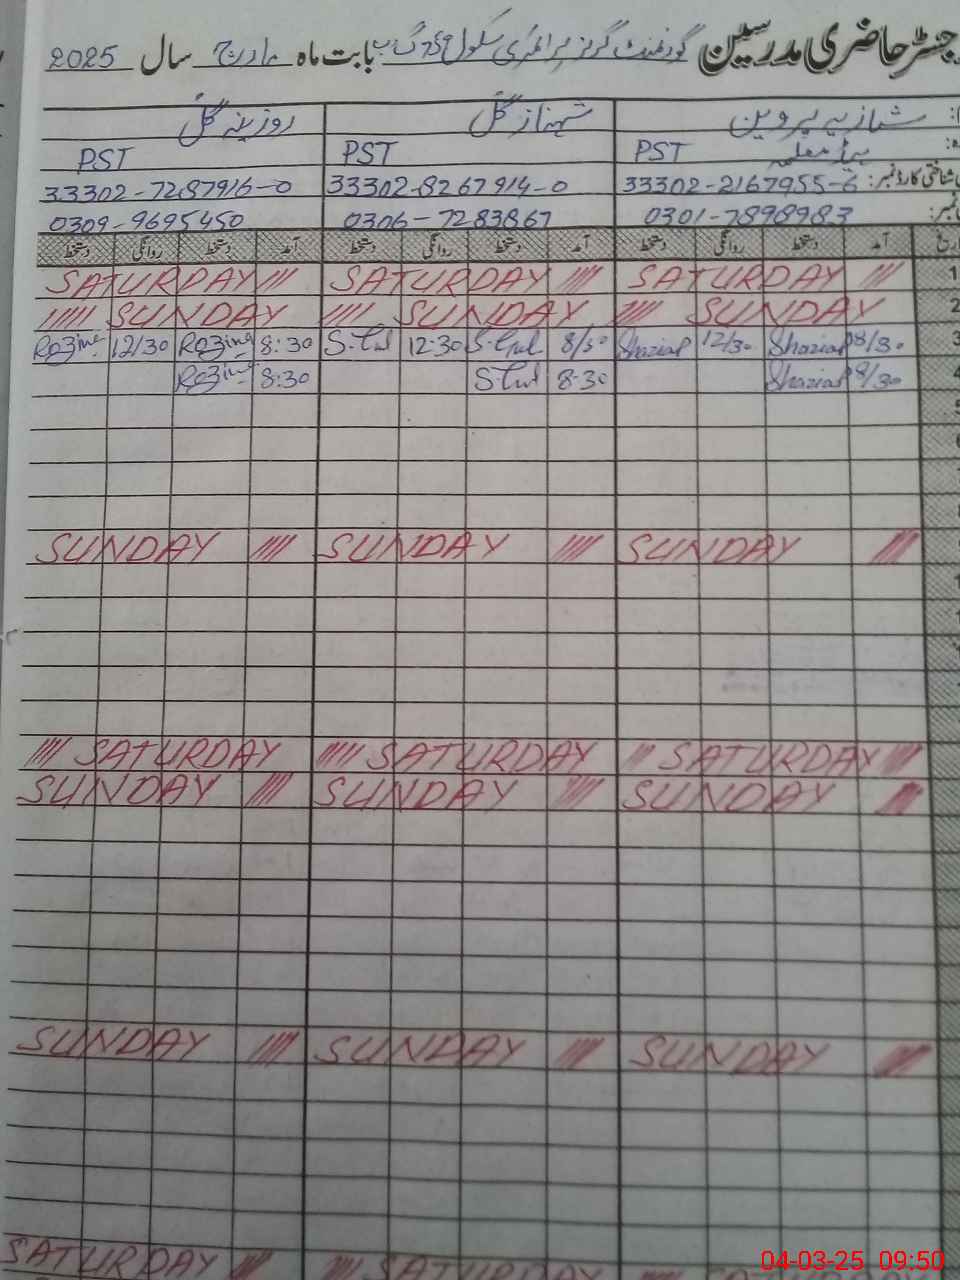 رجسٹر حاضری مدرسین گورنمنٹ گرلز پرائمری سکول گ ب بابت ماہ مارچ سال 2025
شازیہ پروین شہناز گل روزینہ گل
ہیڈ معلمہ PST PST PST
شناختی کارڈ نمبر: 33302-2167955-6 33302-8267914-0 33302-7287916-0
نمبر: 0301-7898983 0306-7283867 0309-9695450
تاریخ آمد دستخط روانگی دستخط آمد دستخط روانگی دستخط آمد دستخط روانگی دستخط
1 SATURDAY SATURDAY SATURDAY
2 SUNDAY SUNDAY SUNDAY
3 8/30 Shazia 12/30 Shazia 8/30 S.Gul 12:30 S.Gul 8:30 Rozina 12/30 Rozina
4 8/30 Shazia 8-30 S Gul 8:30 Rozina
5
6
SUNDAY SUNDAY SUNDAY
SATURDAY SATURDAY SATURDAY
SUNDAY SUNDAY SUNDAY
SUNDAY SUNDAY SUNDAY
SATURDAY SATURDAY
04-03-25 09:50